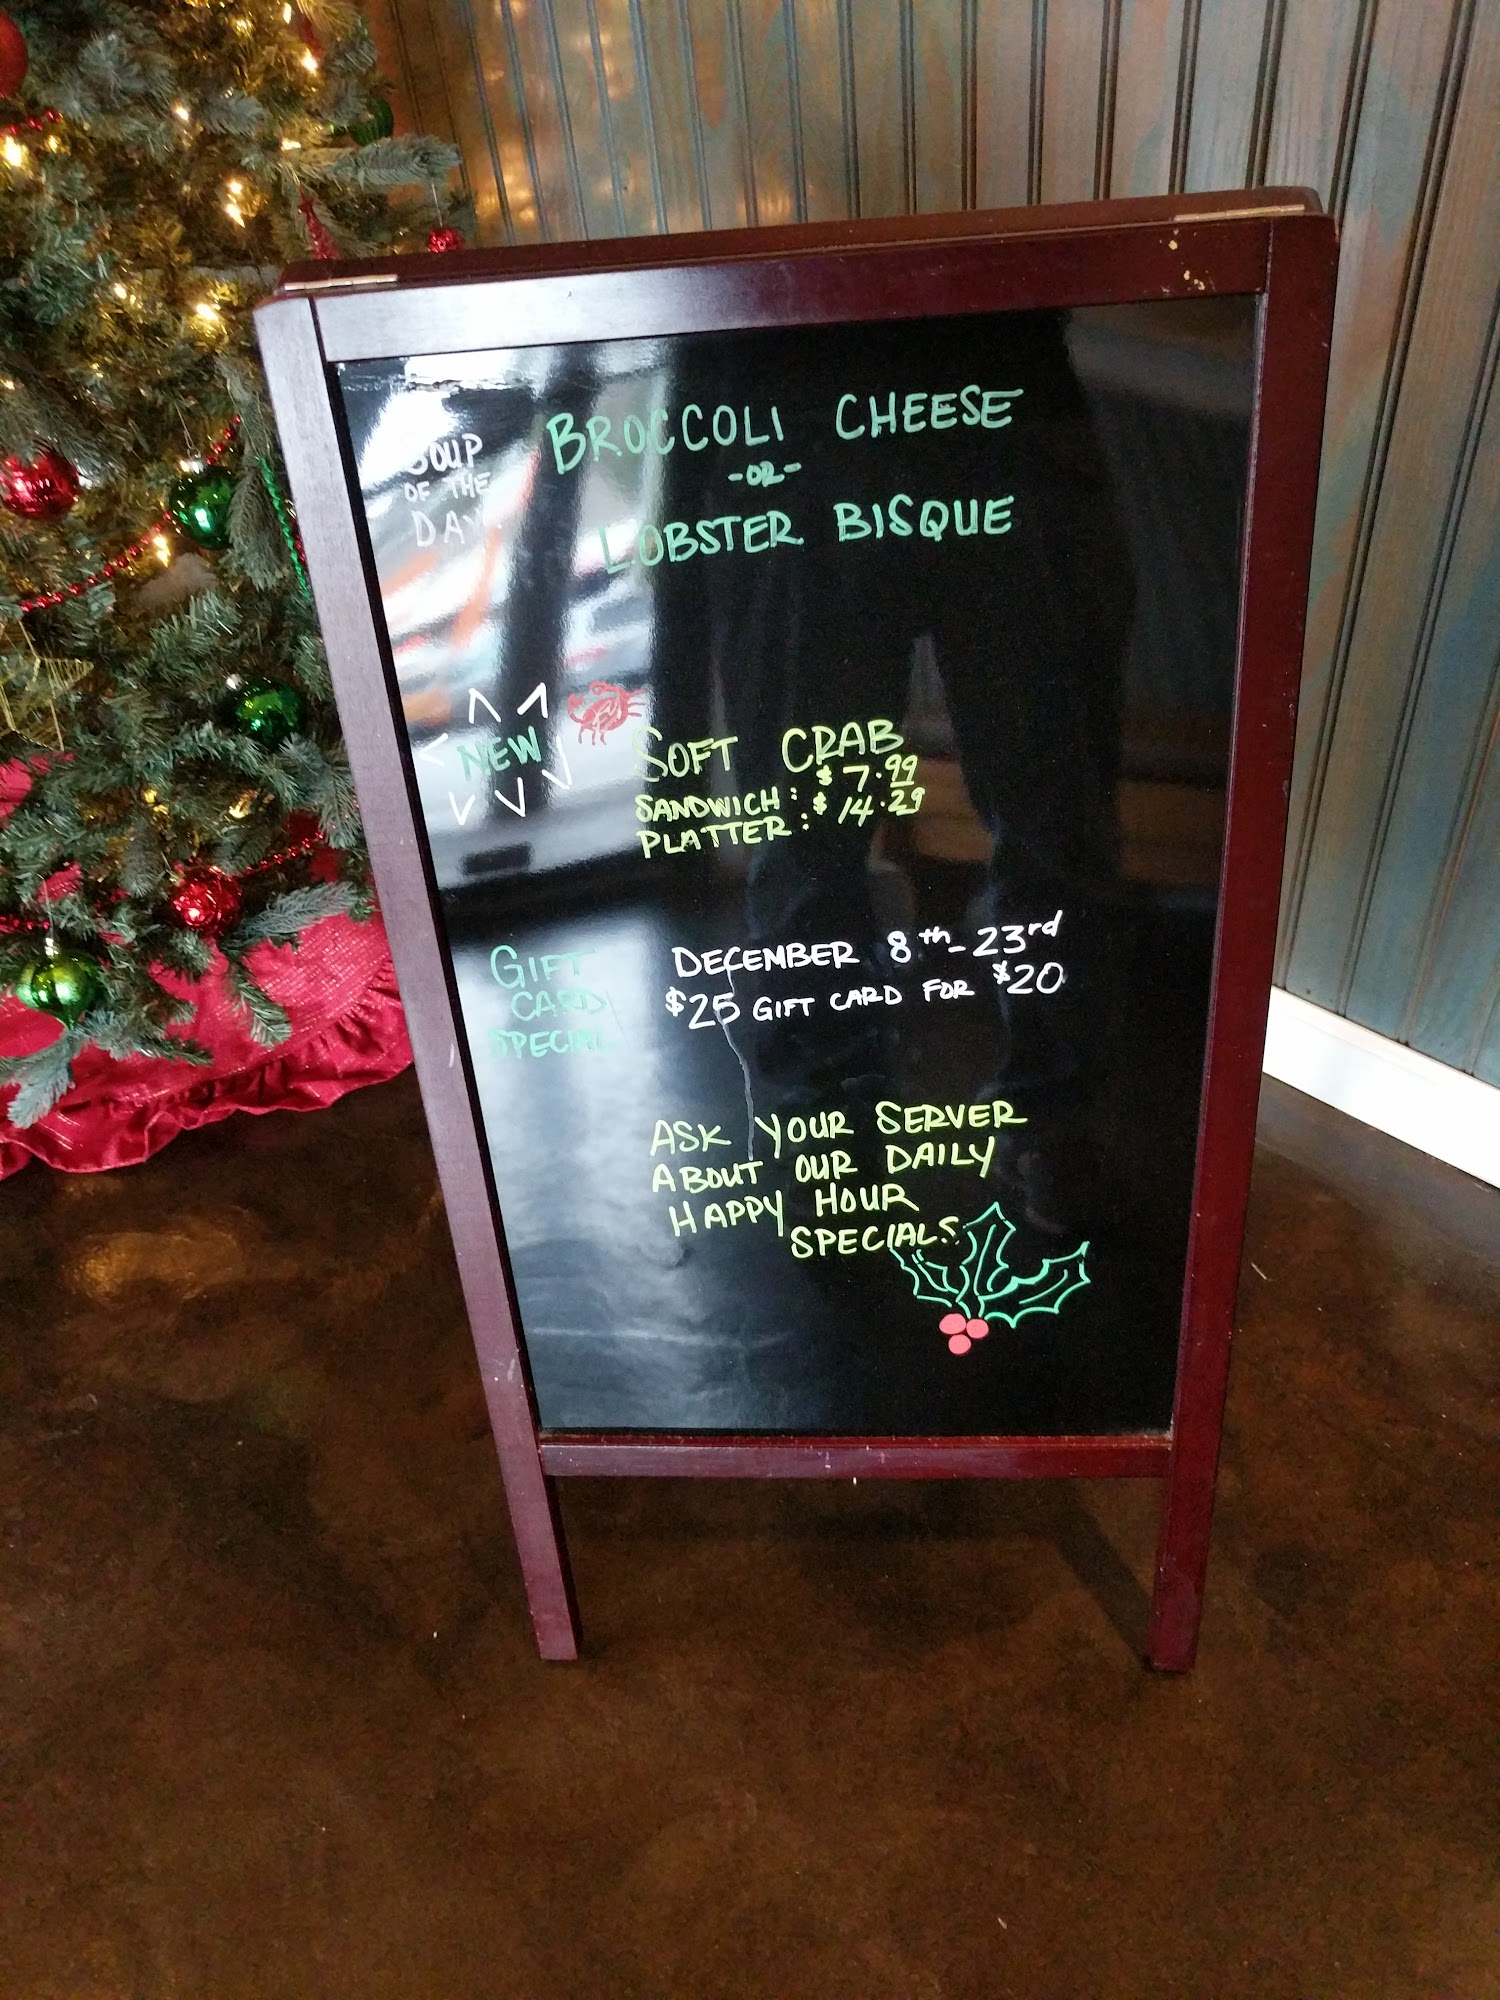 SOUP
OF THE
DAY
BROCCOLI CHEESE
-OR-
LOBSTER BISQUE
NEW
SOFT CRAB
SANDWICH: $7.99
PLATTER: $14.29
GIFT
CARD
SPECIAL
DECEMBER 8th-23rd
$25 GIFT CARD FOR $20
ASK YOUR SERVER
ABOUT OUR DAILY
HAPPY HOUR
SPECIALS